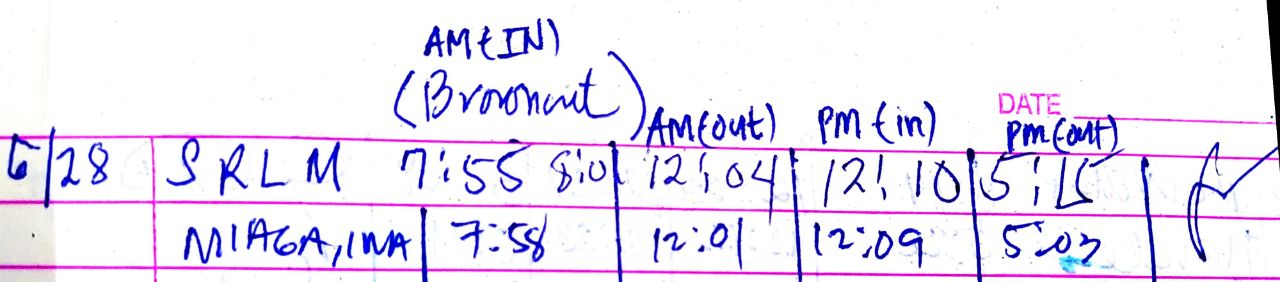 AM (IN)
(Brownout)
DATE
AM (out) PM (in) PM (out)
6/28 SRLM 7:55 8:01 12:04 12:10 5:15
MIAGA, INA 7:58 12:01 12:09 5:03